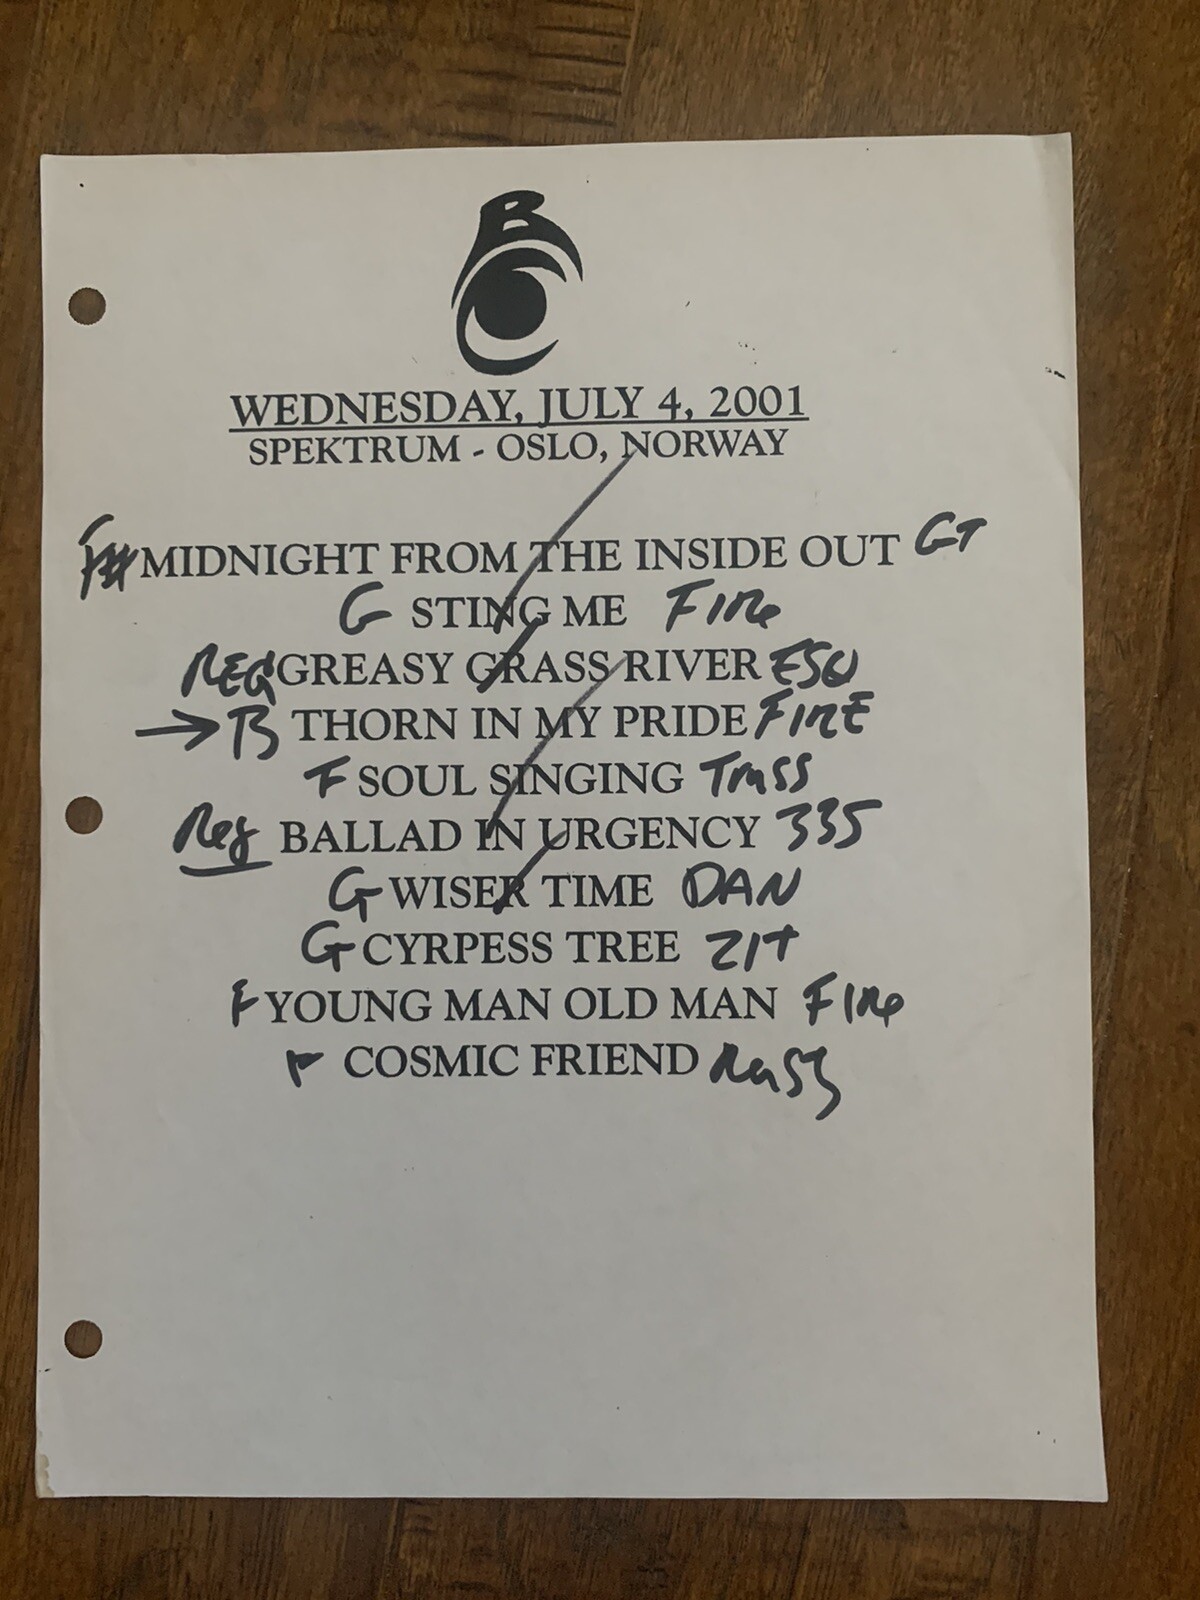 B
WEDNESDAY, JULY 4, 2001
SPEKTRUM - OSLO, NORWAY
MIDNIGHT FROM THE INSIDE OUT GT
G STING ME FIRe
REG GREASY GRASS RIVER ESQ
→ B THORN IN MY PRIDE FIRE
F SOUL SINGING TRUSS
Reg BALLAD IN URGENCY 335
G WISER TIME DAN
G CYRPESS TREE ZIT
F YOUNG MAN OLD MAN FIRe
F COSMIC FRIEND